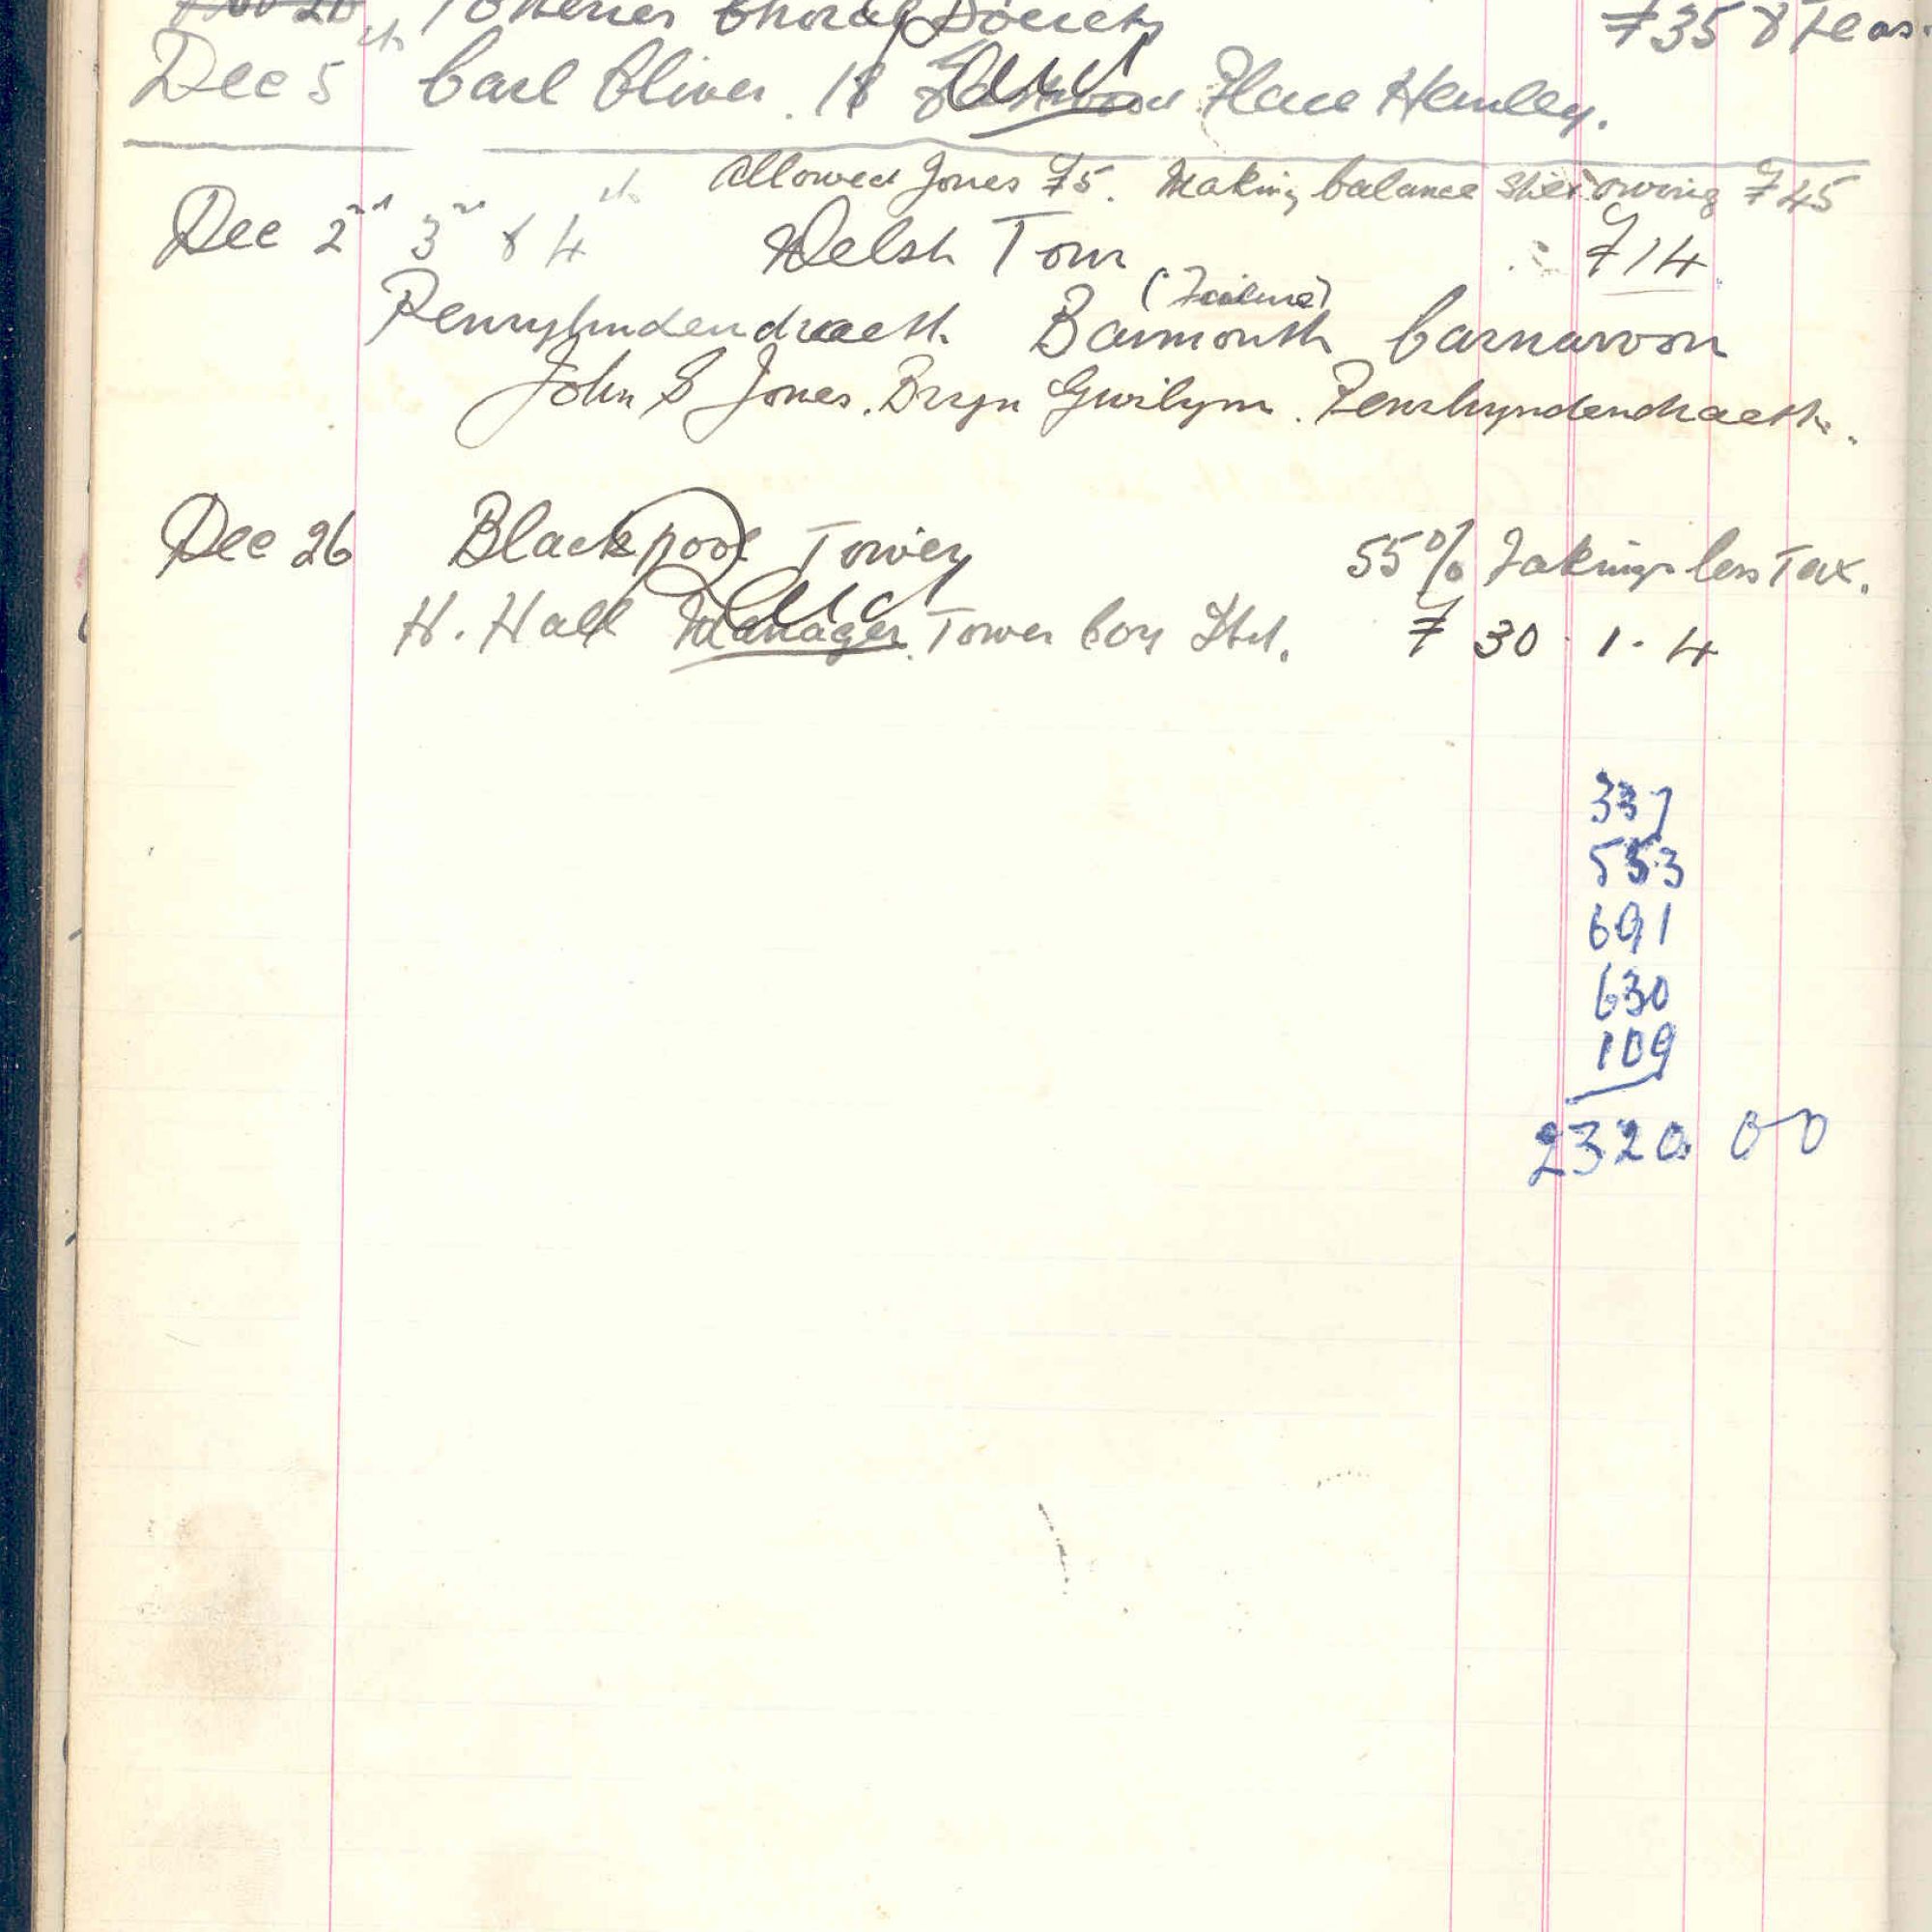 Choral Society £35 & Teas.
Dec 5th Carl Oliver. 18 Place Hanley.
Allowed Jones £5. Making balance still owing £45
Dec 2nd 3rd & 4th Welsh Tour £74
(Failure)
Penryhndendraeth Barmouth Carnarvon
John S Jones. Bryn Gwilym. Penrhyndendraeth.
Dec 26 Blackpool Tower 55% Takings less Tax.
H. Hall Manager. Tower Coy Ltd. £30.1.4
337
553
691
630
109
2320 00